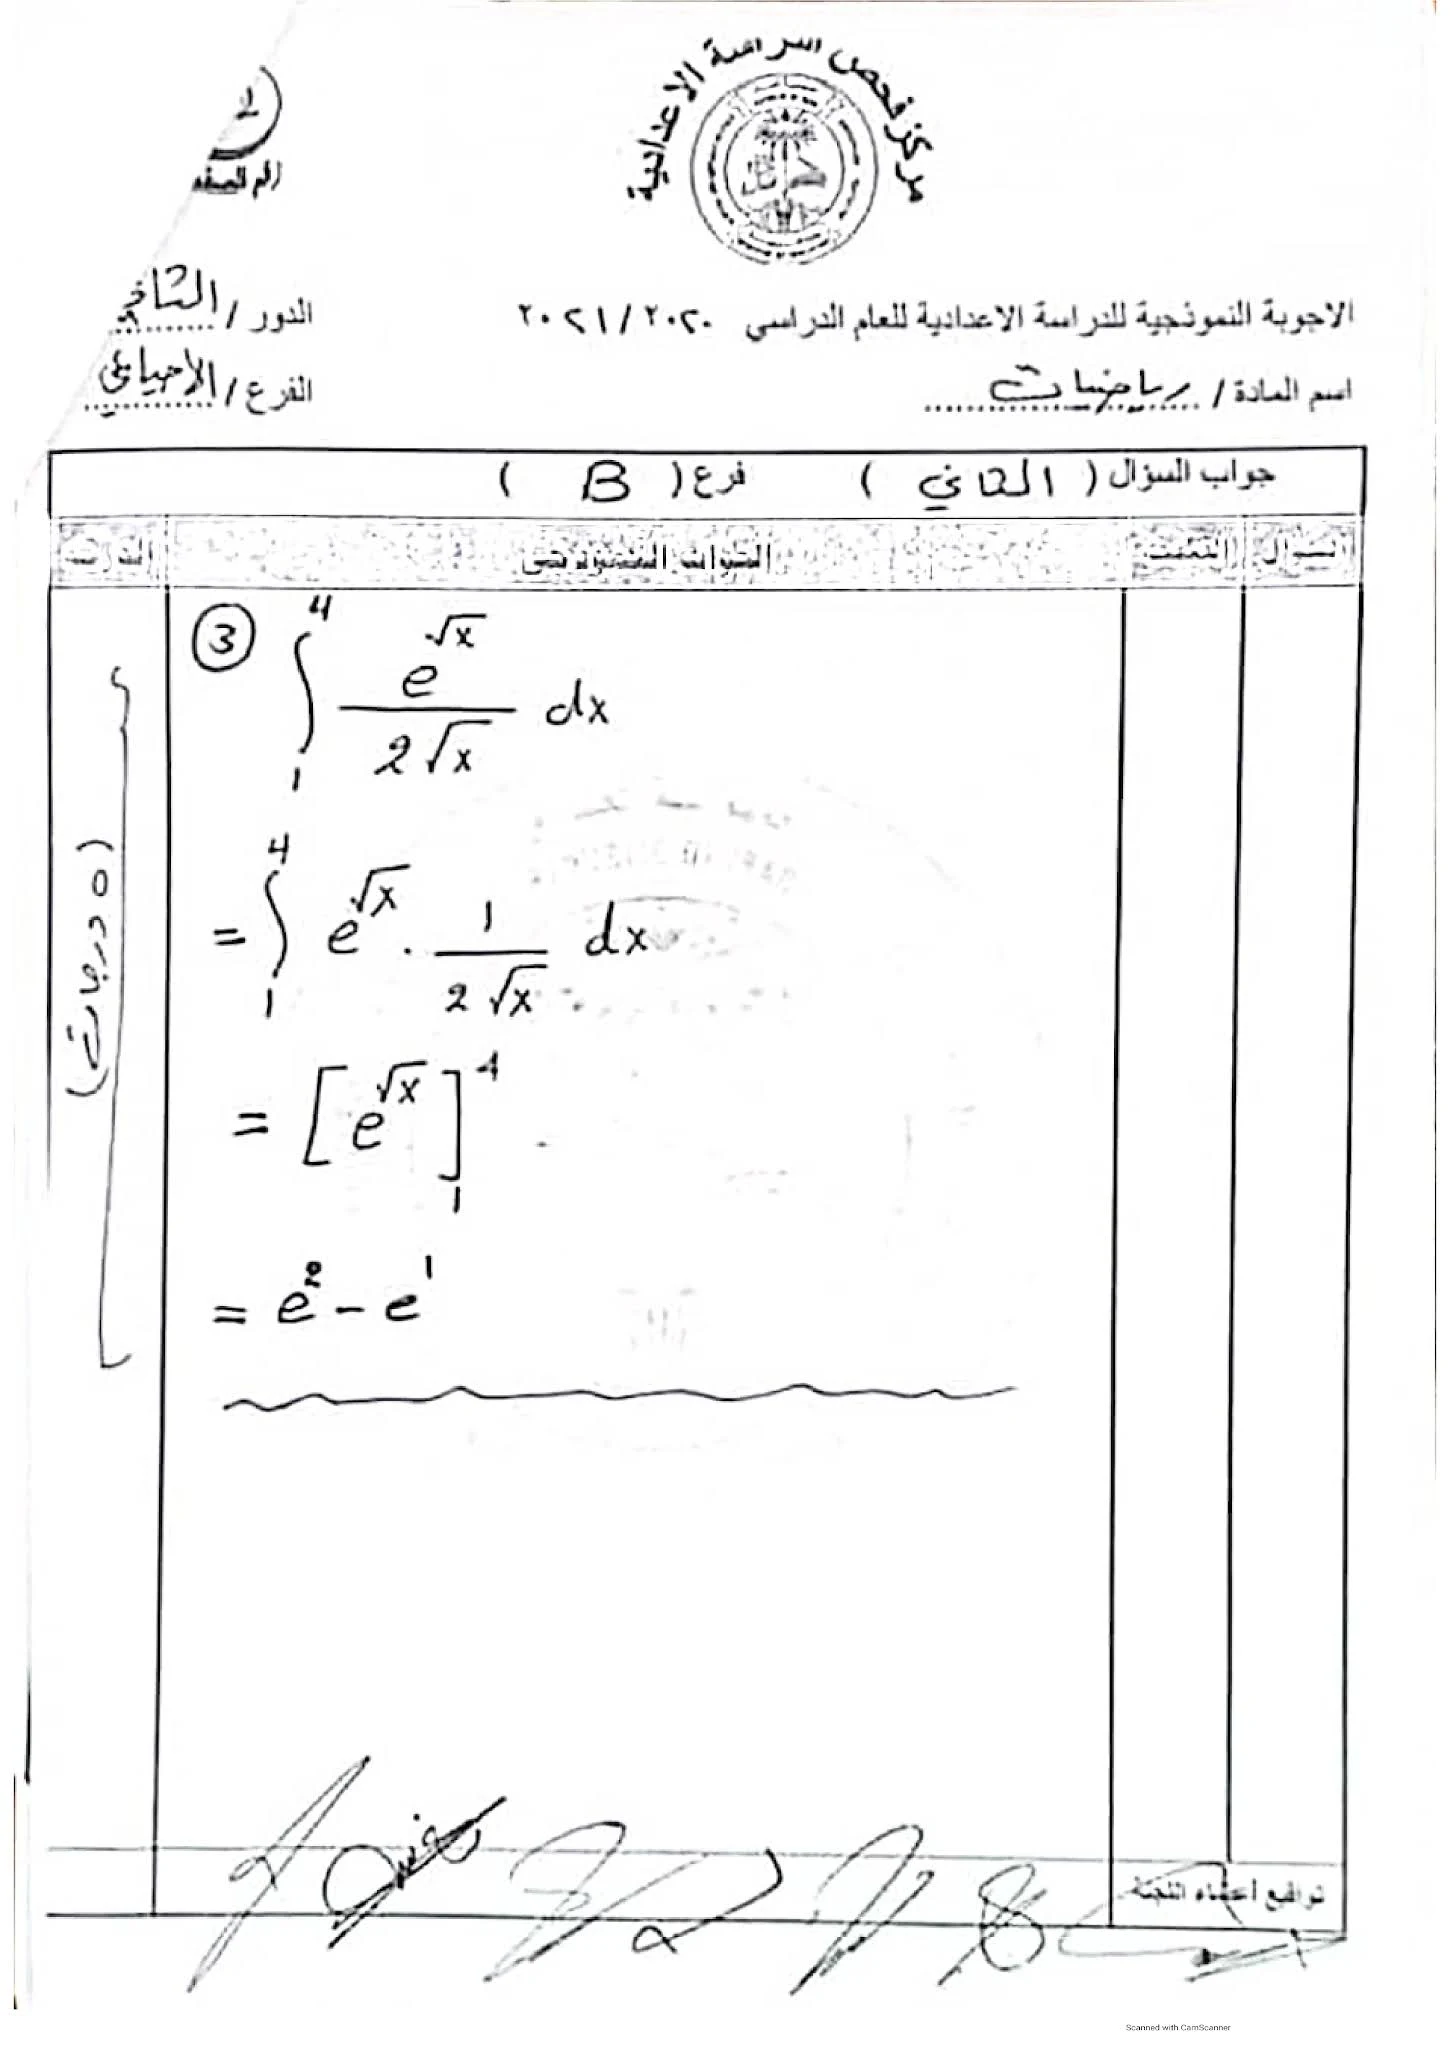 مركز فحص الدراسة الاعدادية
٢
رقم الصفحة
الاجوبة النموذجية للدراسة الاعدادية للعام الدراسي ٢٠٢٠ / ٢٠٢١
الدور / الثاني
اسم المادة / رياضيات
الفرع / الأحيائي
جواب السؤال ( الثاني ) فرع ( B )
السؤال الجواب النموذجي الدرجة
③ ∫₁⁴ e^√x / 2√x dx
= ∫₁⁴ e^√x . 1 / 2√x dx
= [e^√x]₁⁴
= e² - e¹
(٥ درجات)
تواقيع اعضاء اللجنة
Scanned with CamScanner